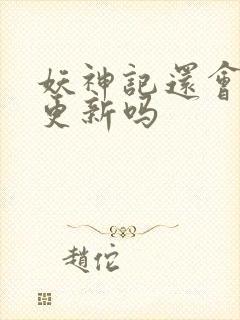 妖神記還會
更新吗
趙佗